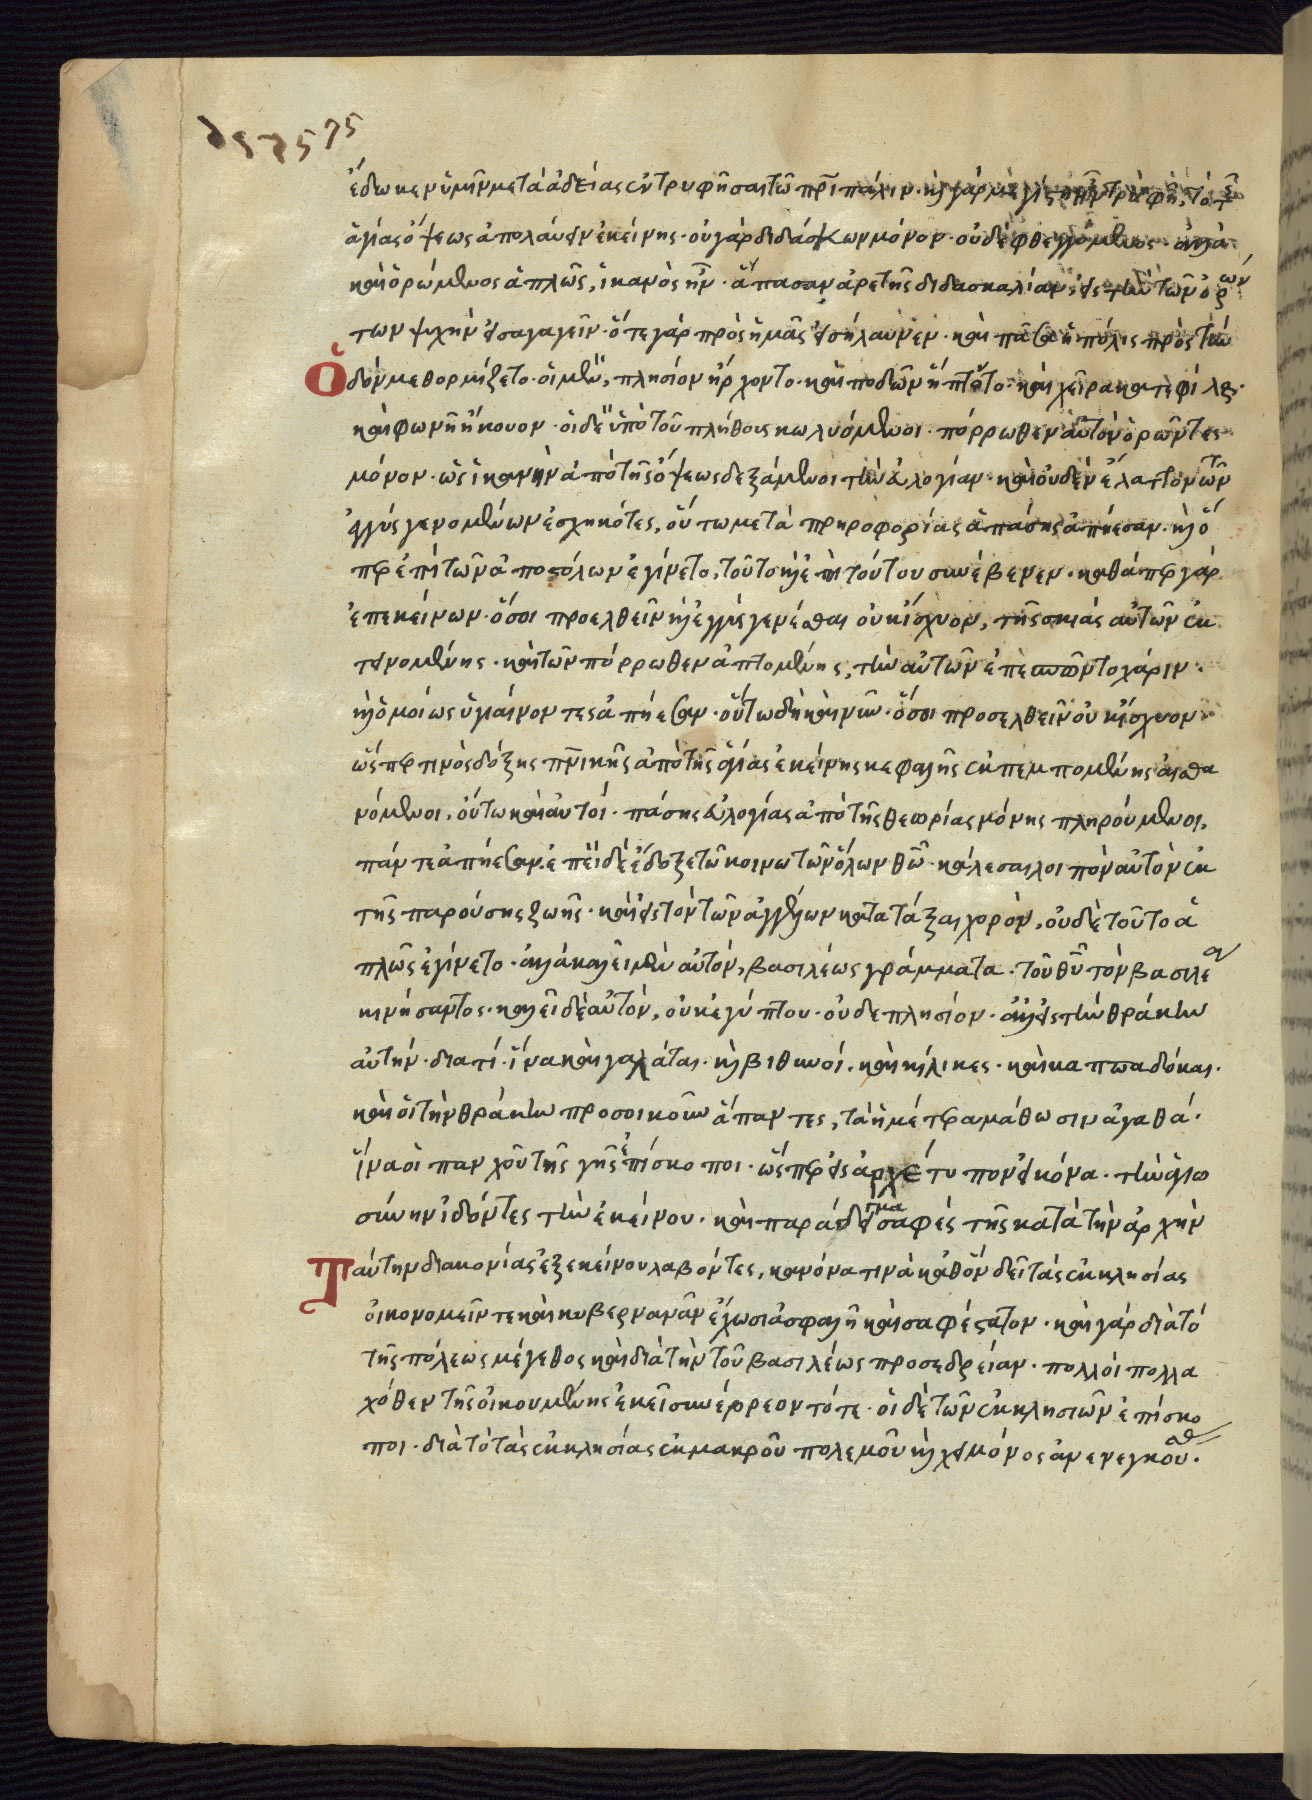 ἔδωκεν ὑμῖν μετὰ ἀδείας ἐντρυφῆσαι τῶ πρι πάλιν· καὶ γὰρ μεγίστη τρυφὴ, τὸ τῆς
ἁγίας ὄψεως ἀπολαύειν ἐκείνης· οὐ γὰρ διδάσκων μόνον· οὐδὲ φθεγγόμενος· ἀλλὰ
καὶ ὁρώμενος ἁπλῶς, ἱκανὸς ἦν· ἅπασαν ἀρετῆς διδασκαλίαν, εἰς τὴν τῶν ὁρών
των ψυχὴν εἰσαγαγεῖν· ὅτε γὰρ πρὸς ἡμᾶς εἰσήλαυνεν· καὶ πᾶσα ἡ πόλις πρὸς τὴν
ὁδὸν μεθορμίζετο· οἱ μὲν, πλησίον ἤρχοντο· καὶ ποδῶν ἥπτοντο· καὶ χεῖρα κατεφίλουν·
καὶ φωνῆ ἤκουον· οἱ δὲ ὑπὸ τοῦ πλήθους κωλυόμενοι· πόρρωθεν αὐτὸν ὁρῶντες
μόνον· ὡς ἱκανὴν ἀπὸ τῆς ὄψεως δεξάμενοι τὴν εὐλογίαν· καὶ οὐδὲν ἔλαττον τῶν
ἐγγὺς γενομένων ἐσχηκότες, οὕτω μετὰ πληροφορίας ἁπάσης ἀπήεσαν· καὶ ὅ
περ ἐπὶ τῶν ἀποστόλων ἐγίνετο, τοῦτο καὶ ἐπὶ τούτου συνέβαινεν· καθάπερ γὰρ
ἐπ ἐκείνων· ὅσοι προελθεῖν καὶ ἐγγὺς γενέσθαι οὐκ ἴσχυον, τῆς σκιᾶς αὐτῶν ἐκ
τεινομένης· καὶ τῶν πόρρωθεν ἁπτομένης, τὴν αὐτῶν ἐπεσπῶντο χάριν·
καὶ ὁμοίως ὑγιαίνοντες ἀπήεσαν· οὕτω δὴ καὶ νῦν· ὅσοι προσελθεῖν οὐκ ἴσχυον
ὥσπερ τινὸς δόξης πνικῆς ἀπὸ τῆς ἁγίας ἐκείνης κεφαλῆς ἐκπεμπομένης αἰσθα
νόμενοι, οὕτω καὶ αὐτοί· πάσης εὐλογίας ἀπὸ τῆς θεωρίας μόνης πληρούμενοι,
πάντε ἀπήεσαν. ἐπεὶ δὲ ἔδοξε τῶ κοινῶ τῶν ὅλων θῶ· καλέσαι λοιπὸν αὐτὸν ἐκ
τῆς παρούσης ζωῆς· καὶ εἰς τὸν τῶν ἀγγέλων κατατάξαι χορὸν, οὐδὲ τοῦτο ἁ
πλῶς ἐγίνετο· ἀλλὰ καλεῖ μὲν αὐτὸν, βασιλέως γράμματα· τοῦ θῦ τὸν βασιλέα
κινήσαντος· καλεῖ δὲ αὐτὸν, οὐκ ἐγύ που· οὐδὲ πλησίον· ἀλλ εἰς τὴν θράκην
αὐτήν· διατί· ἵνα καὶ γαλάται· καὶ βιθυνοί· καὶ κίλικες· καὶ καππαδόκαι·
καὶ οἱ τὴν θράκην προσοικοῦν ἅπαντες, τὰ ἡμέτερα μάθωσιν ἀγαθά·
ἵνα οἱ πανχοῦ τῆς γῆς ἐπίσκοποι· ὥσπερ εἰς ἀρχέτυπον εἰκόνα· τὴν ἁγιω
σύνην ἰδόντες τὴν ἐκείνου· καὶ παράδειγμα σαφὲς τῆς κατὰ τὴν ἀρχὴν
ταύτην διακονίας ἐξ ἐκείνου λαβόντες, κανόνα τινὰ καθ ὃν δεῖ τὰς ἐκκλησίας
οἰκονομεῖν τε καὶ κυβερναν ἔχωσι ἀσφαλῆ καὶ σαφέστατον· καὶ γὰρ διὰ τὸ
τῆς πόλεως μέγεθος καὶ διὰ τὴν τοῦ βασιλέως προσεδρείαν· πολλοὶ πολλα
χόθεν τῆς οἰκουμένης ἐκεῖ συνέρρεον τότε· οἱ δὲ τῶν ἐκκλησιῶν ἐπίσκο
ποι· διὰ τὸ τὰς ἐκκλησίας ἐκ μακροῦ πολέμου καὶ χειμόνος ἀνενεγκού.